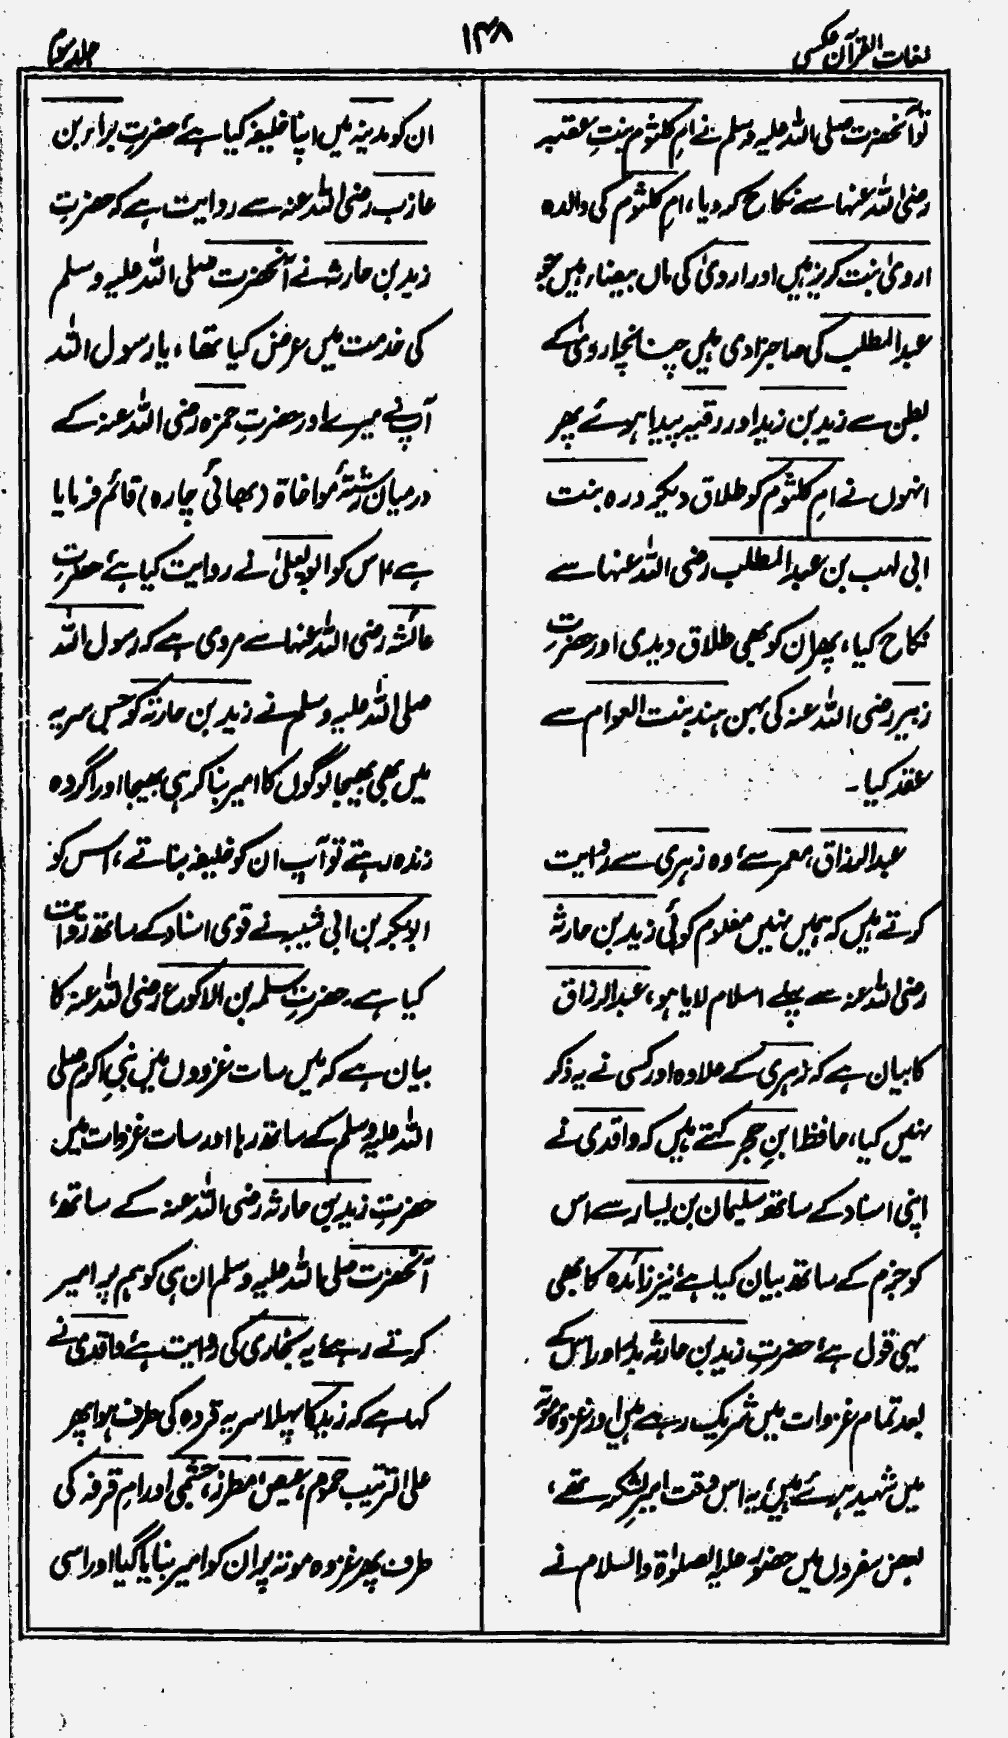 لغات القرآن عکسی
۱۴۸
جلد سوم
تو آنحضرت صلی اللہ علیہ وسلم نے امِ کلثوم بنتِ عقبہ
رضی اللہ عنہا سے نکاح کر دیا، امِ کلثوم کی والدہ
اروی بنت کریز ہیں اور ارویٰ کی ماں بیضار ہیں جو
عبدالمطلب کی صاحبزادی ہیں چنانچہ ارویٰ کے
بطن سے زید بن زید اور رقیہ پیدا ہوئے پھر
انہوں نے امِ کلثوم کو طلاق دیکر درہ بنت
ابی لہب بن عبدالمطلب رضی اللہ عنہا سے
نکاح کیا، پھر ان کو بھی طلاق دیدی اور حضرتِ
زبیر رضی اللہ عنہ کی بہن ہند بنت العوام سے
عقد کیا۔
عبدالرزاق، معمر سے، وہ زہری سے روایت
کرتے ہیں کہ ہمیں نہیں معلوم کوئی زید بن حارثہ
رضی اللہ عنہ سے پہلے اسلام لایا ہو، عبدالرزاق
کا بیان ہے کہ زہری کے علاوہ اور کسی نے یہ ذکر
نہیں کیا، حافظ ابنِ حجر کہتے ہیں کہ واقدی نے
اپنی اسناد کے ساتھ سلیمان بن یسار سے اس
کو جزم کے ساتھ بیان کیا ہے، نیز زائدہ کا بھی
یہی قول ہے، حضرتِ زید بن حارثہ بدر اور اس کے
بعد تمام غزوات میں شریک رہے ہیں اور غزوہ موتہ
میں شہید ہوئے ہیں، یہ اس وقت امیرِ لشکر تھے،
بعض سفروں میں حضور علیہ الصلوٰۃ والسلام نے
ان کو مدینہ میں اپنا خلیفہ کیا ہے، حضرتِ برار بن
عازب رضی اللہ عنہ سے روایت ہے کہ حضرتِ
زید بن حارثہ نے آنحضرت صلی اللہ علیہ وسلم
کی خدمت میں عرض کیا تھا، یا رسول اللہ
آپ نے میرے اور حضرتِ حمزہ رضی اللہ عنہ کے
درمیان رشتۂ مواخاۃ (بھائی چارہ) قائم فرمایا
ہے، اس کو ابو یعلیٰ نے روایت کیا ہے، حضرتِ
عائشہ رضی اللہ عنہا سے مروی ہے کہ رسول اللہ
صلی اللہ علیہ وسلم نے زید بن حارثہ کو جس سریہ
میں بھی بھیجا لوگوں کا امیر بنا کر ہی بھیجا اور اگر وہ
زندہ رہتے تو آپ ان کو خلیفہ بناتے، اس کو
ابوبکر بن ابی شیبہ نے قوی اسناد کے ساتھ روایت
کیا ہے۔ حضرتِ سلمہ بن الاکوع رضی اللہ عنہ کا
بیان ہے کہ میں سات غزووں میں نبیِ اکرم صلی
اللہ علیہ وسلم کے ساتھ رہا اور سات غزوات میں
حضرتِ زید بن حارثہ رضی اللہ عنہ کے ساتھ،
آنحضرت صلی اللہ علیہ وسلم ان ہی کو ہم پر امیر
کرتے رہے، یہ بخاری کی روایت ہے، واقدی نے
کہا ہے کہ زید کا پہلا سریہ قردہ کی طرف ہوا پھر
علی الترتیب جموم، عیص، مطرز، حسمی اور امِ قرفہ کی
طرف پھر غزوہ موتہ پر ان کو امیر بنایا گیا اور اسی